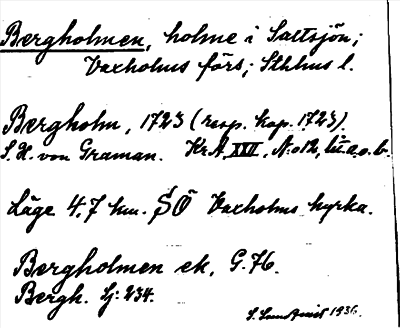 Bergholmen, holme i Saltsjön;
Vaxholms förs; Sthlms l.
Bergholm, 1723 (resp. kop. 1723).
S. H. von Graman. Kr.A. XVII, N:o 12, lit. a, o. b.
Läge 4,7 km. SÖ Vaxholms kyrka.
Bergholmen ek. G. 76.
Bergh. Lj: 234.
1936.